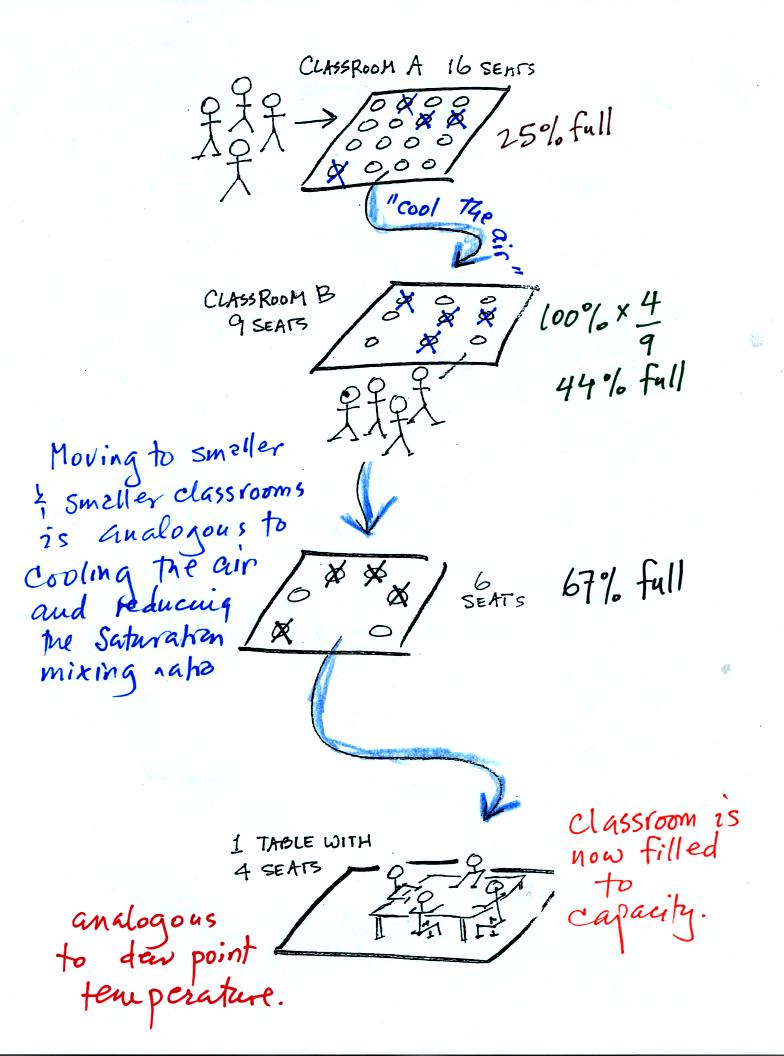 CLASSROOM A 16 SEATS
25% full
"cool the air"
CLASSROOM B
9 SEATS
100% × 4/9
44% full
Moving to smaller
& smaller classrooms
is analogous to
cooling the air
and reducing
the saturation
mixing ratio
6
SEATS
67% full
1 TABLE WITH
4 SEATS
classroom is
now filled
to
capacity.
analogous
to dew point
temperature.